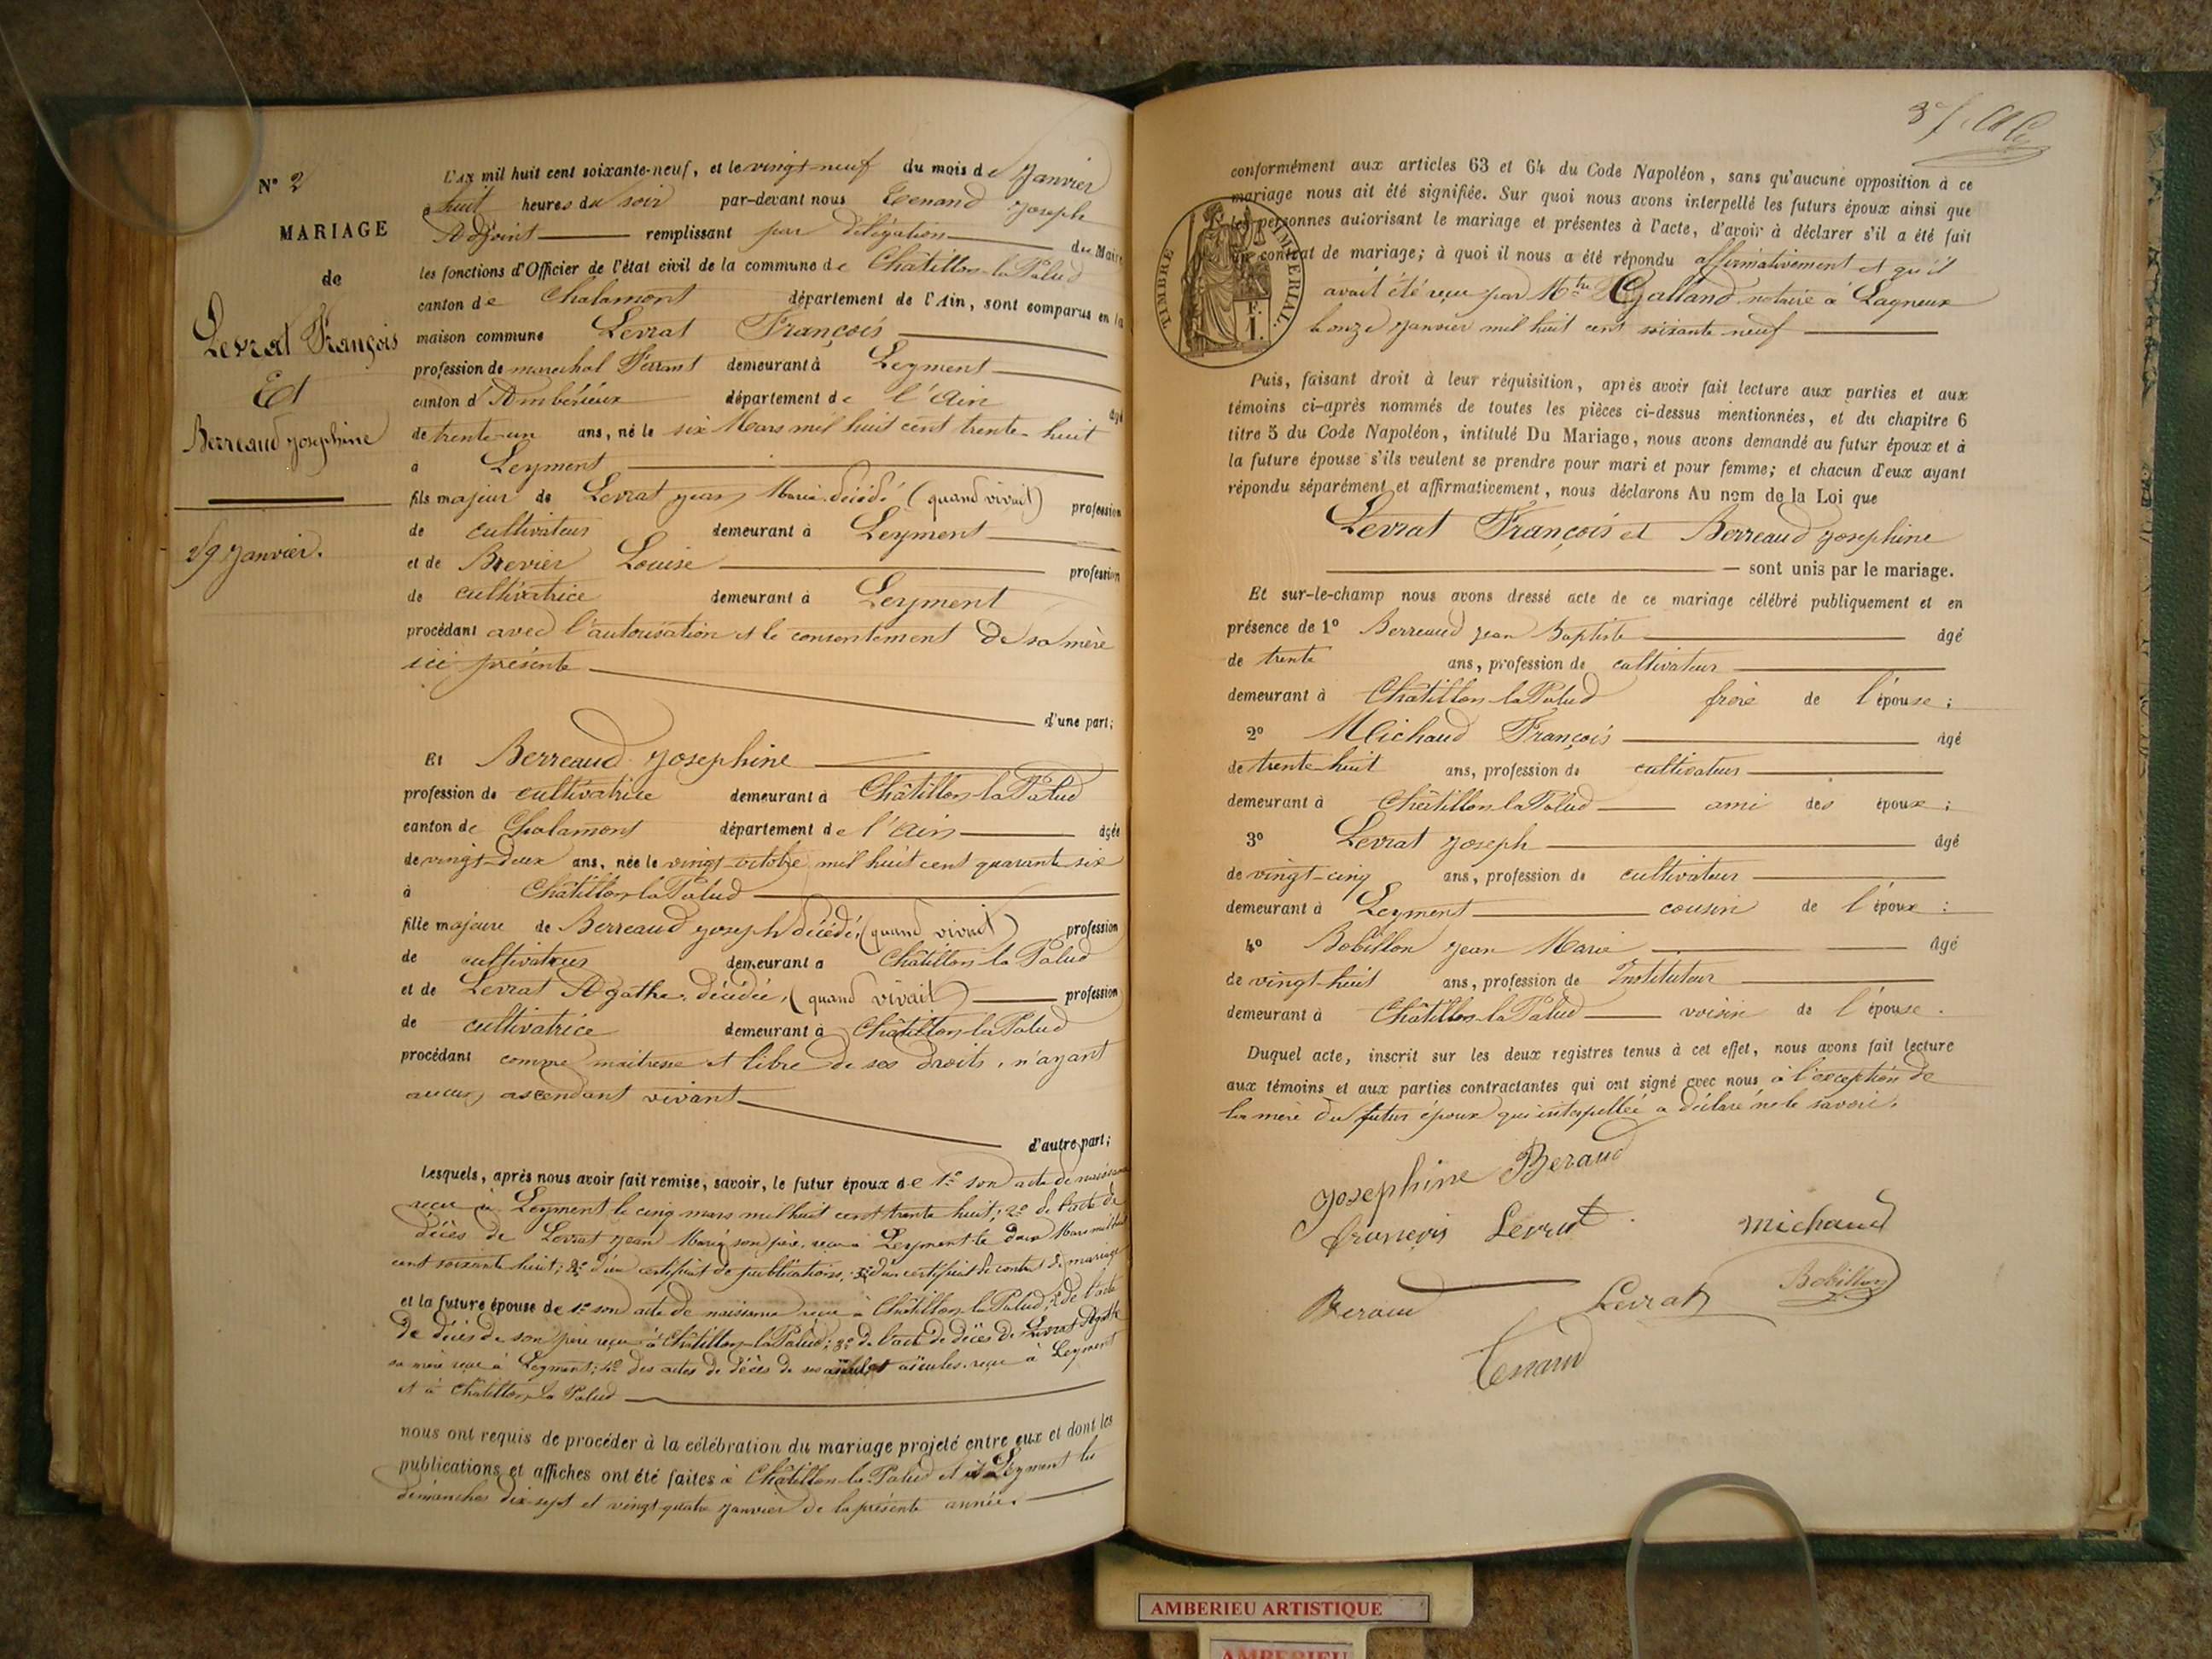 N° 2
MARIAGE
de
Levrat François
Et
Berreaud Josephine
29 Janvier.
L'AN mil huit cent soixante-neuf, et le vingt-neuf du mois de Janvier
à huit heures du soir par-devant nous Tenand Joseph
Adjoint remplissant par délégation du Maire
les fonctions d'Officier de l'état civil de la commune de Châtillon la Palud
canton de Chalamont département de l'Ain, sont comparus en la
maison commune Levrat François
profession de marechal Ferrant demeurant à Leyment
canton d'Ambérieux département de l'Ain âgé
de trente-un ans, né le six Mars mil huit cent trente-huit
à Leyment
fils majeur de Levrat Jean Marie décédé (quand vivait) profession
de cultivateur demeurant à Leyment
et de Brevier Louise profession
de cultivatrice demeurant à Leyment
procédant avec l'autorisation et le consentement de sa mère
ici présente
d'une part;
Et Berreaud Josephine
profession de cultivatrice demeurant à Châtillon la Palud
canton de Chalamont département de l'Ain âgée
de vingt-deux ans, née le vingt octobre mil huit cent quarante six
à Châtillon la Palud
fille majeure de Berreaud Joseph décédé, (quand vivait) profession
de cultivateur demeurant à Châtillon la Palud
et de Levrat Agathe, décédée, (quand vivait) profession
de cultivatrice demeurant à Châtillon la Palud
procédant comme maitresse et libre de ses droits, n'ayant
aucun ascendant vivant
d'autre part;
Lesquels, après nous avoir fait remise, savoir, le futur époux de 1° son acte de naissance
reçu à Leyment le cinq mars mil huit cent trente huit; 2° de l'acte de
décès de Levrat Jean Marie son père, reçu à Leyment le deux Mars mil huit
cent soixante huit; 3° d'un certificat de publications; d'un certificat de contrat de mariage
et la future épouse de 1° son acte de naissance reçu à Châtillon la Palud; 2° de l'acte
de décès de son père reçu à Châtillon la Palud; 3° de l'acte de décès de Levrat Agathe
sa mère reçu à Leyment; 4° des actes de décès de ses aïeules reçu à Leyment
et à Châtillon la Palud
nous ont requis de procéder à la célébration du mariage projeté entre eux et dont les
publications et affiches ont été faites à Châtillon la Palud et à Leyment les
dimanches dix-sept et vingt-quatre Janvier de la présente année.
conformément aux articles 63 et 64 du Code Napoléon, sans qu'aucune opposition à ce
mariage nous ait été signifiée. Sur quoi nous avons interpellé les futurs époux ainsi que
les personnes autorisant le mariage et présentes à l'acte, d'avoir à déclarer s'il a été fait
un contrat de mariage; à quoi il nous a été répondu affirmativement et qu'il
avait été reçu par Mtre Galland notaire à Lagneux
le onze Janvier mil huit cent soixante neuf
TIMBRE IMPERIAL.
1 F.
Puis, faisant droit à leur réquisition, après avoir fait lecture aux parties et aux
témoins ci-après nommés de toutes les pièces ci-dessus mentionnées, et du chapitre 6
titre 5 du Code Napoléon, intitulé Du Mariage, nous avons demandé au futur époux et à
la future épouse s'ils veulent se prendre pour mari et pour femme; et chacun d'eux ayant
répondu séparément et affirmativement, nous déclarons Au nom de la Loi que
Levrat François et Berreaud Josephine
sont unis par le mariage.
Et sur-le-champ nous avons dressé acte de ce mariage célébré publiquement et en
présence de 1° Berreaud Jean Baptiste âgé
de trente ans, profession de cultivateur
demeurant à Châtillon la Palud frère de l'épouse;
2° Michaud François âgé
de trente huit ans, profession de cultivateur
demeurant à Châtillon la Palud ami des époux;
3° Levrat Joseph âgé
de vingt-cinq ans, profession de cultivateur
demeurant à Leyment cousin de l'époux:
4° Bobillon Jean Marie âgé
de vingt-huit ans, profession de Instituteur
demeurant à Châtillon la Palud voisin de l'épouse.
Duquel acte, inscrit sur les deux registres tenus à cet effet, nous avons fait lecture
aux témoins et aux parties contractantes qui ont signé avec nous à l'exception de
la mère du futur époux qui interpellée a déclaré ne le savoir.
Josephine Beraud
françois Levrat michaud
Beraud Levrat Bobillon
Tenand
AMBERIEU ARTISTIQUE
AMBERIEU